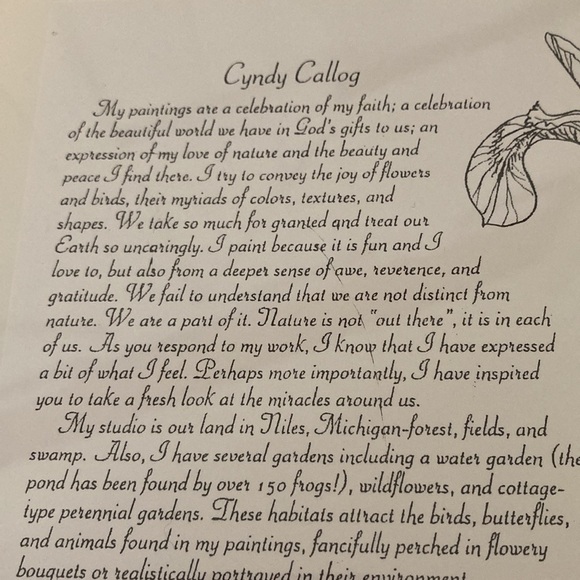 Cyndy Callog
My paintings are a celebration of my faith; a celebration
of the beautiful world we have in God's gifts to us; an
expression of my love of nature and the beauty and
peace I find there. I try to convey the joy of flowers
and birds, their myriads of colors, textures, and
shapes. We take so much for granted and treat our
Earth so uncaringly. I paint because it is fun and I
love to, but also from a deeper sense of awe, reverence, and
gratitude. We fail to understand that we are not distinct from
nature. We are a part of it. Nature is not "out there", it is in each
of us. As you respond to my work, I know that I have expressed
a bit of what I feel. Perhaps more importantly, I have inspired
you to take a fresh look at the miracles around us.
My studio is our land in Niles, Michigan-forest, fields, and
swamp. Also, I have several gardens including a water garden (the
pond has been found by over 150 frogs!), wildflowers, and cottage-
type perennial gardens. These habitats attract the birds, butterflies,
and animals found in my paintings, fancifully perched in flowery
bouquets or realistically portrayed in their environment